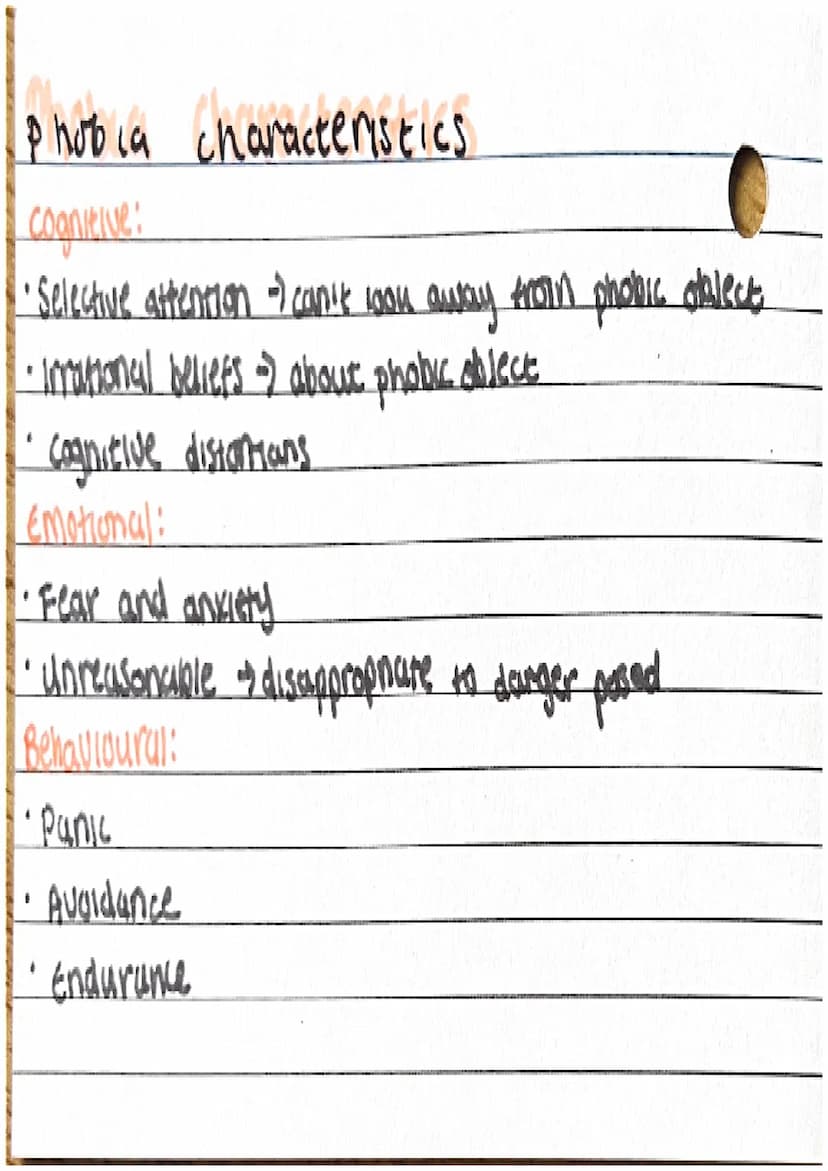 Phobia Characteristics
Cognitive:
· Selective attention → can't look away from phobic object
· Irrational beliefs → about phobic object
· Cognitive distortions
Emotional:
· Fear and anxiety
· Unreasonable → disappropriate to danger posed
Behavioural:
· Panic
· Avoidance
· Endurance